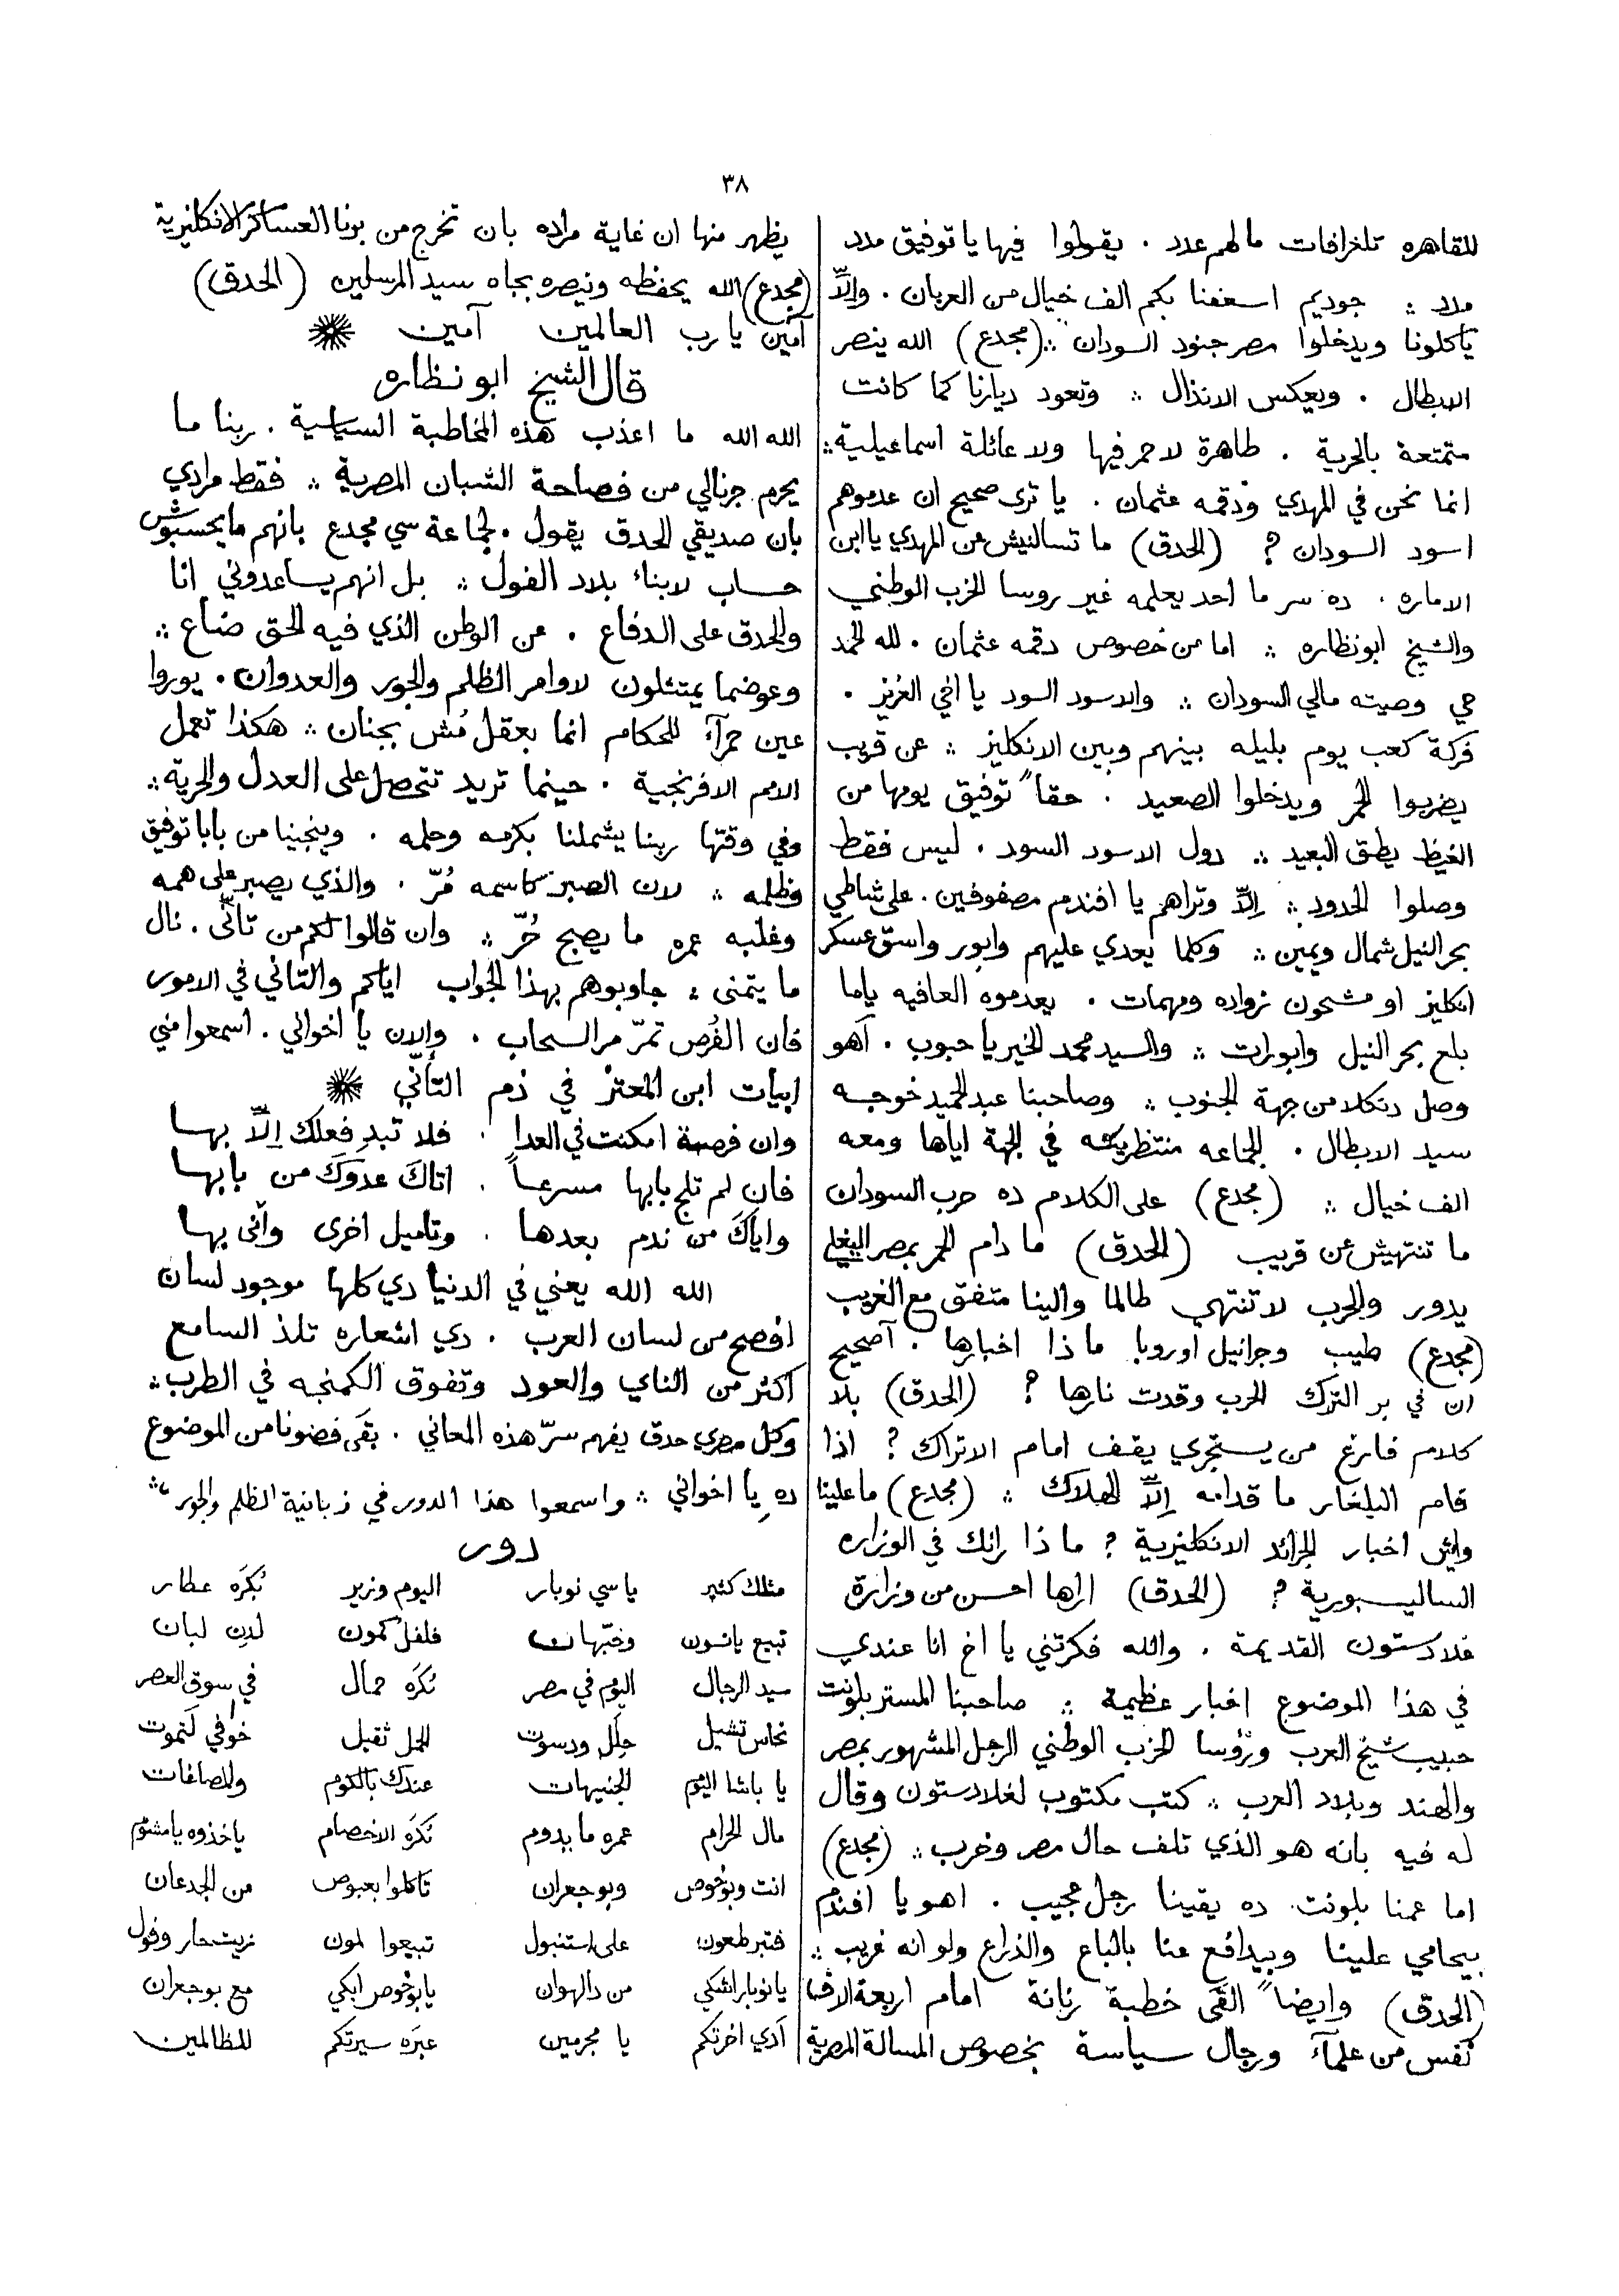 ٣٨
للقاهره تلغرافات مالهم عدد . يقولوا فيها يا توفيق مدد
مدد ؞ جوديم اسعفنا بكم الف خيال من العربان . والّا
ياكلونا ويدخلوا مصر جنود السودان ؞ (مجدع) الله ينصر
الابطال . ويعكس الانذال ؞ وتعود ديارنا كما كانت
متمتعة بالحرية . طاهرة لا حمر فيها ولا عائلة اسماعيلية ؞
انما نحن في المهدي ودقمه عثمان . يا ترى صحيح ان عدموهم
اسود السودان ? (الحدق) ما تسالنيش عن المهدي يا ابن
الاماره . ده سر ما احد يعلمه غير روسا الحزب الوطني
والشيخ ابونظاره ؞ اما من خصوص دقمه عثمان . لله الحمد
حي وصيته مالي السودان ؞ والاسود السود يا اخي العزيز .
فركة كعب يوم بليله بينهم وبين الانكليز ؞ عن قريب
يضربوا الحمر ويدخلوا الصعيد . حقاً توفيق يومها من
الغيظ يطق البعيد ؞ دول الاسود السود . ليس فقط
وصلوا الحدود ؞ الّا وتراهم يا افندم مصفوفين . على شاطي
بحر النيل شمال ويمين ؞ وكلما يعدي عليهم وابور واسق عسكر
انكليز او مشحون زواده ومهمات . يعدموه العافيه ياما
بلع بحر النيل وابورات ؞ والسيد محمد الخير يا حبوب . اهو
وصل دنكلا من جهة الجنوب ؞ وصاحبنا عبد الحميد خوجه
سيد الابطال . الجماعه منتظرينه في الجهة اياها ومعه
الف خيال ؞ (مجدع) على الكلام ده حرب السودان
ما تنتهيش عن قريب (الحدق) ما دام الحمر بمصر البغلي
يدور والحرب لا تنتهي طالما والينا متفق مع الغريب
(مجدع) طيب وجرانيل اوروبا ما ذا اخبارها . آصحيح
ان في بر الترك الحرب وقدت نارها ? (الحدق) بلا
كلام فارغ من يستجري يقف امام الاتراك ? اذا
قام البلغار ما قدامه الّا الهلاك ؞ (مجدع) ما علينا
وايش اخبار الجرائد الانكليزية ? ما ذا رانك في الوزاره
الساليسبورية ? (الحدق) اراها احسن من وزارة
غلادستون القديمة . والله فكرتني يا اخ انا عندي
في هذا الموضوع اخبار عظيمة ؞ صاحبنا المستر بلونت
حبيب شيخ العرب ورؤسا الحزب الوطني الرجل المشهور بمصر
والهند وبلاد العرب ؞ كتب مكتوب لغلادستون وقال
له فيه بانه هو الذي تلف حال مصر وخرب ؞ (مجدع)
اما عمنا بلونت ده يقينا رجل عجيب . اهو يا افندم
بيحامي علينا وبيدافع عنا بالباع والذراع ولو انه غريب ؞
(الحدق) وايضاً القى خطبة رنانة امام اربعة الاف
نفس من علمآء ورجال سياسة بخصوص المسالة المصرية
يظهر منها ان غاية مراده بان تخرج من برنا العساكر الانكليزية
(مجدع) الله يحفظه وينصره بجاه سيد المرسلين (الحدق)
آمين يا رب العالمين آمين
قال الشيخ ابو نظاره
الله الله ما اعذب هذه المخاطبة السياسية . ربنا ما
يحرم جرنالي من فصاحة الشبان المصرية ؞ فقط مرادي
بان صديقي الحدق يقول . لجماعة سي مجدع بانهم مايحسبوش
حساب لابناء بلاد الفول ؞ بل انهم يساعدوني انا
والحدق على الدفاع . عن الوطن الذي فيه الحق ضاع ؞
وعوضما يمتثلون لاوامر الظلم والجور والعدوان . يوروا
عين حمرآء للحكام انما بعقل مُش بجنان ؞ هكذا تعمل
الامم الافرنجية . حينما تريد تتحصل على العدل والحرية ؞
وفي وقتها ربنا يشملنا بكرمه وحلمه . وينجينا من بابا توفيق
وظلمه ؞ لان الصبر كاسمه مُرّ . والذي يصبر على همه
وغلبه عمره ما يصبح حُرّ ؞ وان قالوا لكم من تانّى . نال
ما يتمنى ؞ جاوبوهم بهذا الجواب اياكم والتاني في الامور
فان الفُرص تمرّ مر السحاب . والان يا اخوالي . اسمعوا مني
ابيات ابن المعتز في ذم التأنّي
وان فرصة امكنت في العدا . فلا تبدِ فعلك الّا بها
فان لم تلج بابها مسرعاً . اتاكَ عدوكَ من بابها
واياكَ من ندم بعدها . وتاميل اخرى وأنّى بها
الله الله يعني في الدنيا دي كلها موجود لسان
افصح من لسان العرب . دي اشعاره تلذ السامع
اكثر من الناي والعود وتفوق الكمنجه في الطرب ؞
وكل مصري حدق يفهم سرّ هذه المعاني . بقى فضونا من الموضوع
ده يا اخواني ؞ واسمعوا هذا الدور في زبانية الظلم والجور ؞
دور
مثلك كثير يا سي نوبار اليوم وزير بُكرَه عطار
تبيع يانسون وحبّهات فلفل كمون لدن لبان
سيد الرجال اليوم في مصر بُكرَه حمال في سوق العصر
نحاس تشيل حِلَل ودسوت الحمل ثقيل خوافي لَتموت
يا باشا اليوم الجنيهات عندك بالكوم والمصاغات
مال الحرام عمره ما يدوم بُكرَه الاخصام ياخذوه يا مشئوم
انت وبوخوص وبوجعران تاكلوا بعبوص من الجدعان
على استنبول تبيعوا لمون زيت حار وفول
يا نوبار اشكي من دالهوان يا بوخوص ابكي مع بوجعران
آدي اخرتكم يا مجرمين عبَره سيرتكم للظالمين